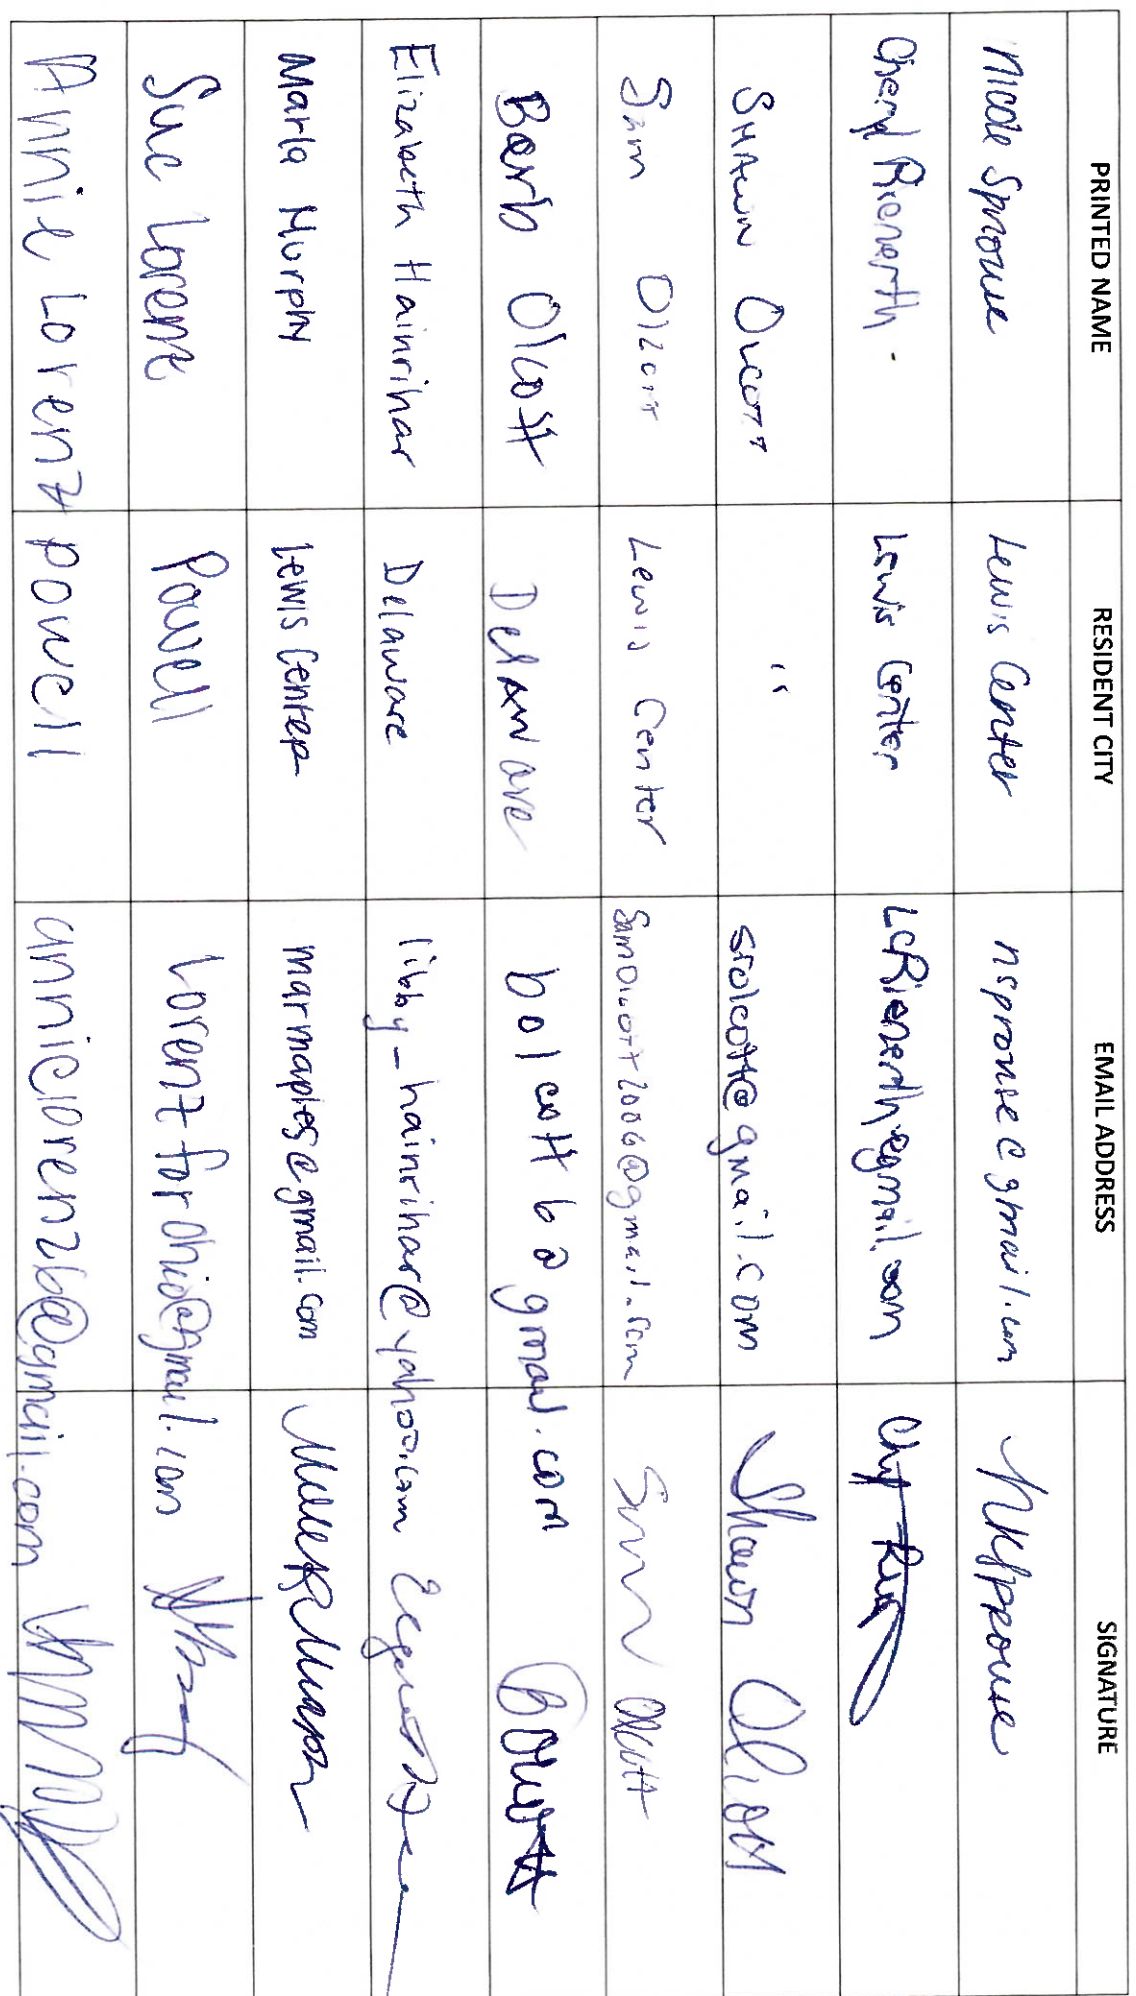 PRINTED NAME RESIDENT CITY EMAIL ADDRESS SIGNATURE
Nicole Sprouse Lewis Center nsprouse@gmail.com NKSprouse
Cheryl Rienerth Lewis Center LCRienerth@gmail.com
SHAWN OLCOTT " srolcott@gmail.com Shawn Olcott
Sam Olcott Lewis Center Samolcott2006@gmail.com Sam Olcott
Barb Olcott Delaware bolcott6@gmail.com BOlcott
Elizabeth Hainrihar Delaware libby_hainrihar@yahoo.com
Marla Murphy Lewis Center marmaples@gmail.com
Sue Lorenz Powell Lorenzforohio@gmail.com
Annie Lorenz Powell annielorenz6@gmail.com